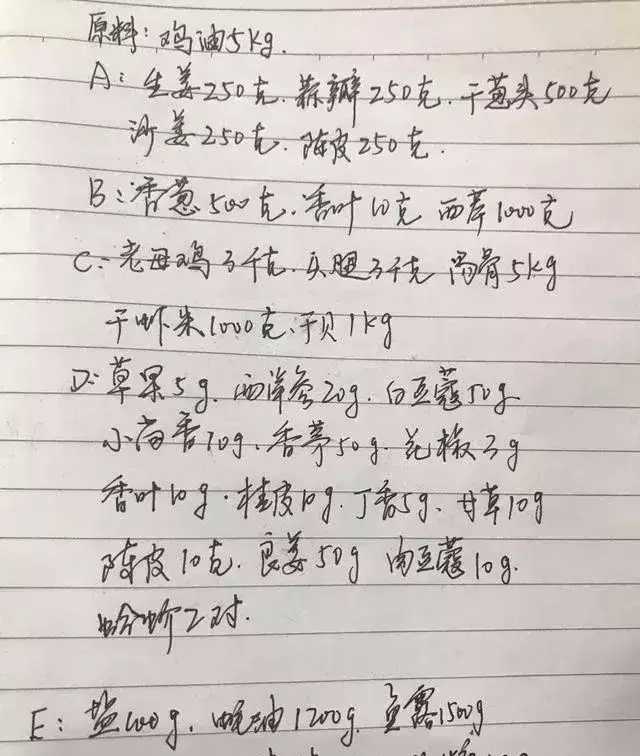 原料: 鸡油5kg.
A: 生姜250克. 蒜瓣250克. 干葱头500克
沙姜250克. 陈皮250克.
B: 香葱500克. 香叶10克 西芹1000克
C: 老母鸡3千克. 火腿3千克 筒骨5kg
干虾米1000克. 干贝1kg
D: 草果5g. 西洋参20g. 白豆蔻50g
小茴香10g. 香茅50g. 花椒3g
香叶10g. 桂皮10g. 丁香5g. 甘草10g
陈皮10克. 良姜50g 肉豆蔻10g.
蛤蚧2对.
E: 盐100g. 蚝油1200g. 鱼露1500g